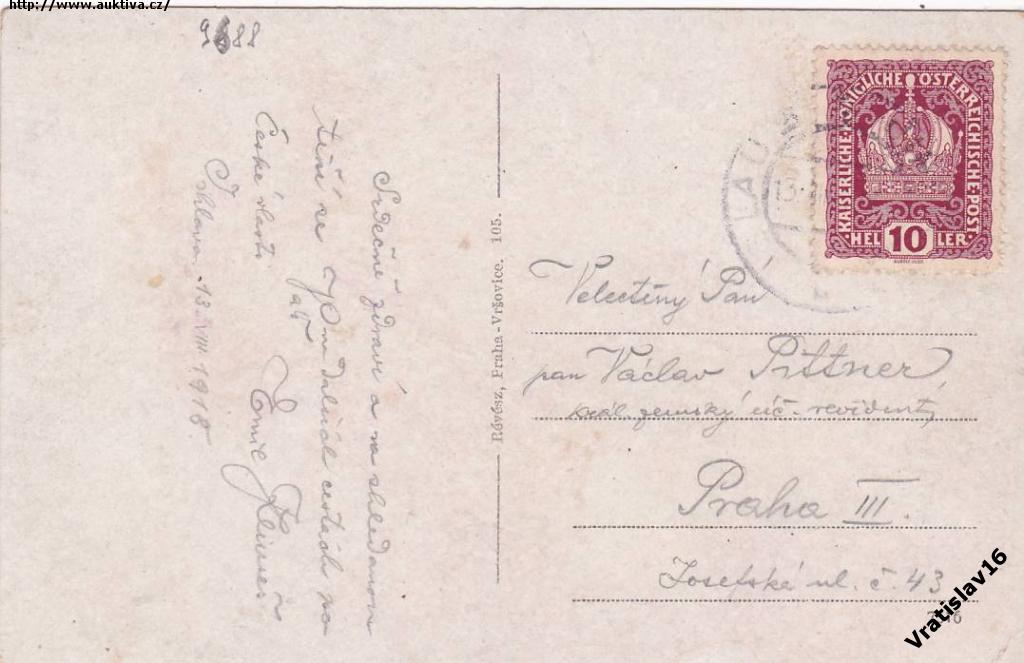 http://www.auktiva.cz/
9688
Srdečné zdraví a na shledanou
těší se
dalších cestách po
České vlasti
Váš
Emil
Jihlava, 13.VIII.1918.
Révész, Praha-Vršovice. 105.
KAISERLICHE·KÖNIGLICHE ÖSTERREICHISCHE·POST
HEL 10 LER
LAU
13.
Velectěný Pán
pan Václav Pittner,
král. zemský úč. revident,
Praha III.
Josefská ul. č. 43
Vratislav16